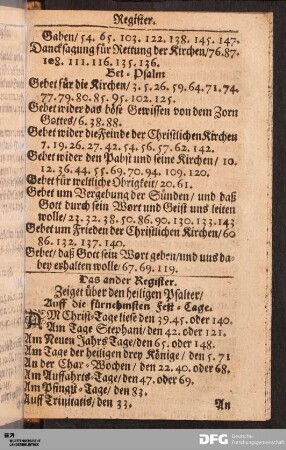 Register.
Gaben/ 54. 65. 103. 122. 138. 145. 147.
Dancksagung für Rettung der Kirchen/ 76. 87.
108. 111. 116. 135. 136.
Bet-Psalm
Gebet für die Kirchen/ 3. 5. 26. 59. 64. 71. 74.
77. 79. 80. 85. 95. 102. 125.
Gebet wider das böse Gewissen von dem Zorn
Gottes/ 6. 38. 88.
Gebet wider die Feinde der Christlichen Kirchen
7. 19. 26. 27. 42. 54. 56. 57. 62. 142.
Gebet wider den Pabst und seine Kirchen/ 10.
12. 36. 44. 55. 69. 70. 94. 109. 120.
Gebet für weltliche Obrigkeit/ 20. 61.
Gebet um Vergebung der Sünden/ und daß
Gott durch sein Wort und Geist uns leiten
wolle/ 23. 32. 38. 50. 86. 90. 130. 133. 143
Gebet um Frieden der Christlichen Kirchen/ 60
86. 132. 137. 140.
Gebet/ daß Gott sein Wort geben/ und uns da-
bey erhalten wolle/ 67. 69. 119.
Das ander Register.
Zeiget über den heiligen Psalter/
Auff die fürnehmsten Fest-Tage.
AM Christ-Tage liese den 39. 45. oder 140.
Am Tage Stephani/ den 42. oder 121.
Am Neuen Jahrs Tage/ den 65. oder 148.
Am Tage der heiligen drey Könige/ den 5. 71
An der Char-Wochen/ den 22. 40. oder 68.
Am Auffahrts-Tage/ den 47. oder 69.
Am Pfingst-Tage/ den 83.
Auff Trinitatis/ den 33.
An
DFG
Deutsche
Forschungsgemeinschaft